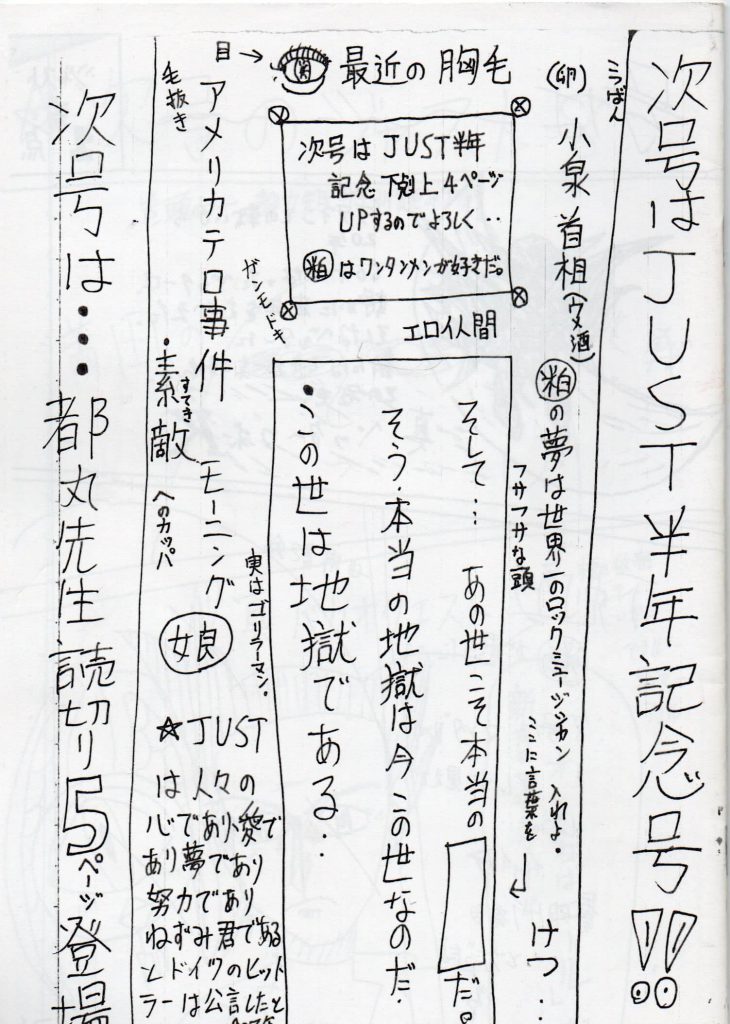 次号はJUST半年記念号!!
こうばん
(卵)小泉首相(ウメ酒)
粕の夢は世界一のロックミュージシャン 入れよ。
ここに言葉を
けつ・・
フサフサな頭
最近の胸毛
目→
次号はJUST半年
記念下剋上4ページ
UPするのでよろしく・・
粕はワンタンメンが好きだ。
エロ仏間
そして… あの世こそ本当の
だ。
そう・本当の地獄は今この世なのだ・
・この世は地獄である・・
ガンモドキ
実はゴリラーマン。
アメリカテロ事件 モーニング娘
毛抜き
・素敵 へのカッパ
すてき
☆JUST
は人々の
心であり愛で
あり夢であり
努力であり
ねずみ君である
とドイツのヒット
ラーは公言したと
次号は・・・都丸先生読切り5ページ登場